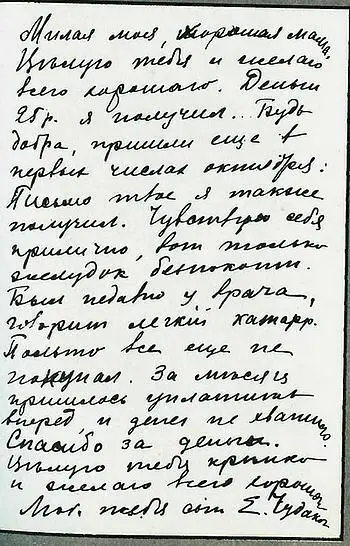 Милая моя, хорошая мама,
Цѣлую тебя и желаю
всего хорошаго. Деньги
25 р. я получил... Будь
добра, пришли еще в
первых числах октября:
Письмо твое я также
получил. Чувствую себя
прилично, вот только
желудок безпокоит.
Был недавно у врача,
говорит легкий катарр.
Пальто все еще не
покупал. За мѣсяц
пришлось уплатить
вперед, и денег не хватило.
Спасибо за деньги.
Цѣлую тебя крѣпко
и желаю всего хорошаго
тебя от Е. Чудаков